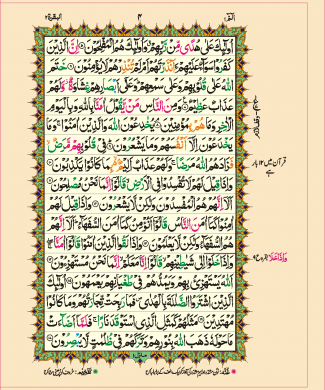 الٓمّٓ ١ ٤ البقرة ٢
اُولٰٓئِكَ عَلٰى هُدًى مِّنْ رَّبِّهِمْ وَاُولٰٓئِكَ هُمُ الْمُفْلِحُوْنَ اِنَّ الَّذِيْنَ
كَفَرُوْا سَوَآءٌ عَلَيْهِمْ ءَاَنْذَرْتَهُمْ اَمْ لَمْ تُنْذِرْهُمْ لَا يُؤْمِنُوْنَ خَتَمَ
اللّٰهُ عَلٰى قُلُوْبِهِمْ وَعَلٰى سَمْعِهِمْ وَعَلٰٓى اَبْصَارِهِمْ غِشَاوَةٌ وَّلَهُمْ
عَذَابٌ عَظِيْمٌ وَمِنَ النَّاسِ مَنْ يَّقُوْلُ اٰمَنَّا بِاللّٰهِ وَبِالْيَوْمِ
الْاٰخِرِ وَمَا هُمْ بِمُؤْمِنِيْنَ يُخٰدِعُوْنَ اللّٰهَ وَالَّذِيْنَ اٰمَنُوْا وَمَا
يَخْدَعُوْنَ اِلَّآ اَنْفُسَهُمْ وَمَا يَشْعُرُوْنَ فِيْ قُلُوْبِهِمْ مَّرَضٌ
فَزَادَهُمُ اللّٰهُ مَرَضًا وَلَهُمْ عَذَابٌ اَلِيْمٌ بِمَا كَانُوْا يَكْذِبُوْنَ
وَاِذَا قِيْلَ لَهُمْ لَا تُفْسِدُوْا فِى الْاَرْضِ قَالُوْٓا اِنَّمَا نَحْنُ مُصْلِحُوْنَ
اَلَآ اِنَّهُمْ هُمُ الْمُفْسِدُوْنَ وَلٰكِنْ لَّا يَشْعُرُوْنَ وَاِذَا قِيْلَ لَهُمْ
اٰمِنُوْا كَمَآ اٰمَنَ النَّاسُ قَالُوْٓا اَنُؤْمِنُ كَمَآ اٰمَنَ السُّفَهَآءُ اَلَآ اِنَّهُمْ
هُمُ السُّفَهَآءُ وَلٰكِنْ لَّا يَعْلَمُوْنَ وَاِذَا لَقُوا الَّذِيْنَ اٰمَنُوْا قَالُوْٓا اٰمَنَّا
وَاِذَا خَلَوْا اِلٰى شَيٰطِيْنِهِمْ قَالُوْٓا اِنَّا مَعَكُمْ اِنَّمَا نَحْنُ مُسْتَهْزِءُوْنَ
اَللّٰهُ يَسْتَهْزِئُ بِهِمْ وَيَمُدُّهُمْ فِيْ طُغْيَانِهِمْ يَعْمَهُوْنَ اُولٰٓئِكَ
الَّذِيْنَ اشْتَرَوُا الضَّلٰلَةَ بِالْهُدٰى فَمَا رَبِحَتْ تِّجَارَتُهُمْ وَمَا كَانُوْا
مُهْتَدِيْنَ مَثَلُهُمْ كَمَثَلِ الَّذِى اسْتَوْقَدَ نَارًا فَلَمَّآ اَضَآءَتْ
مَا حَوْلَهٗ ذَهَبَ اللّٰهُ بِنُوْرِهِمْ وَتَرَكَهُمْ فِيْ ظُلُمٰتٍ لَّا يُبْصِرُوْنَ
قرآن میں ۱۲ بار
ہے